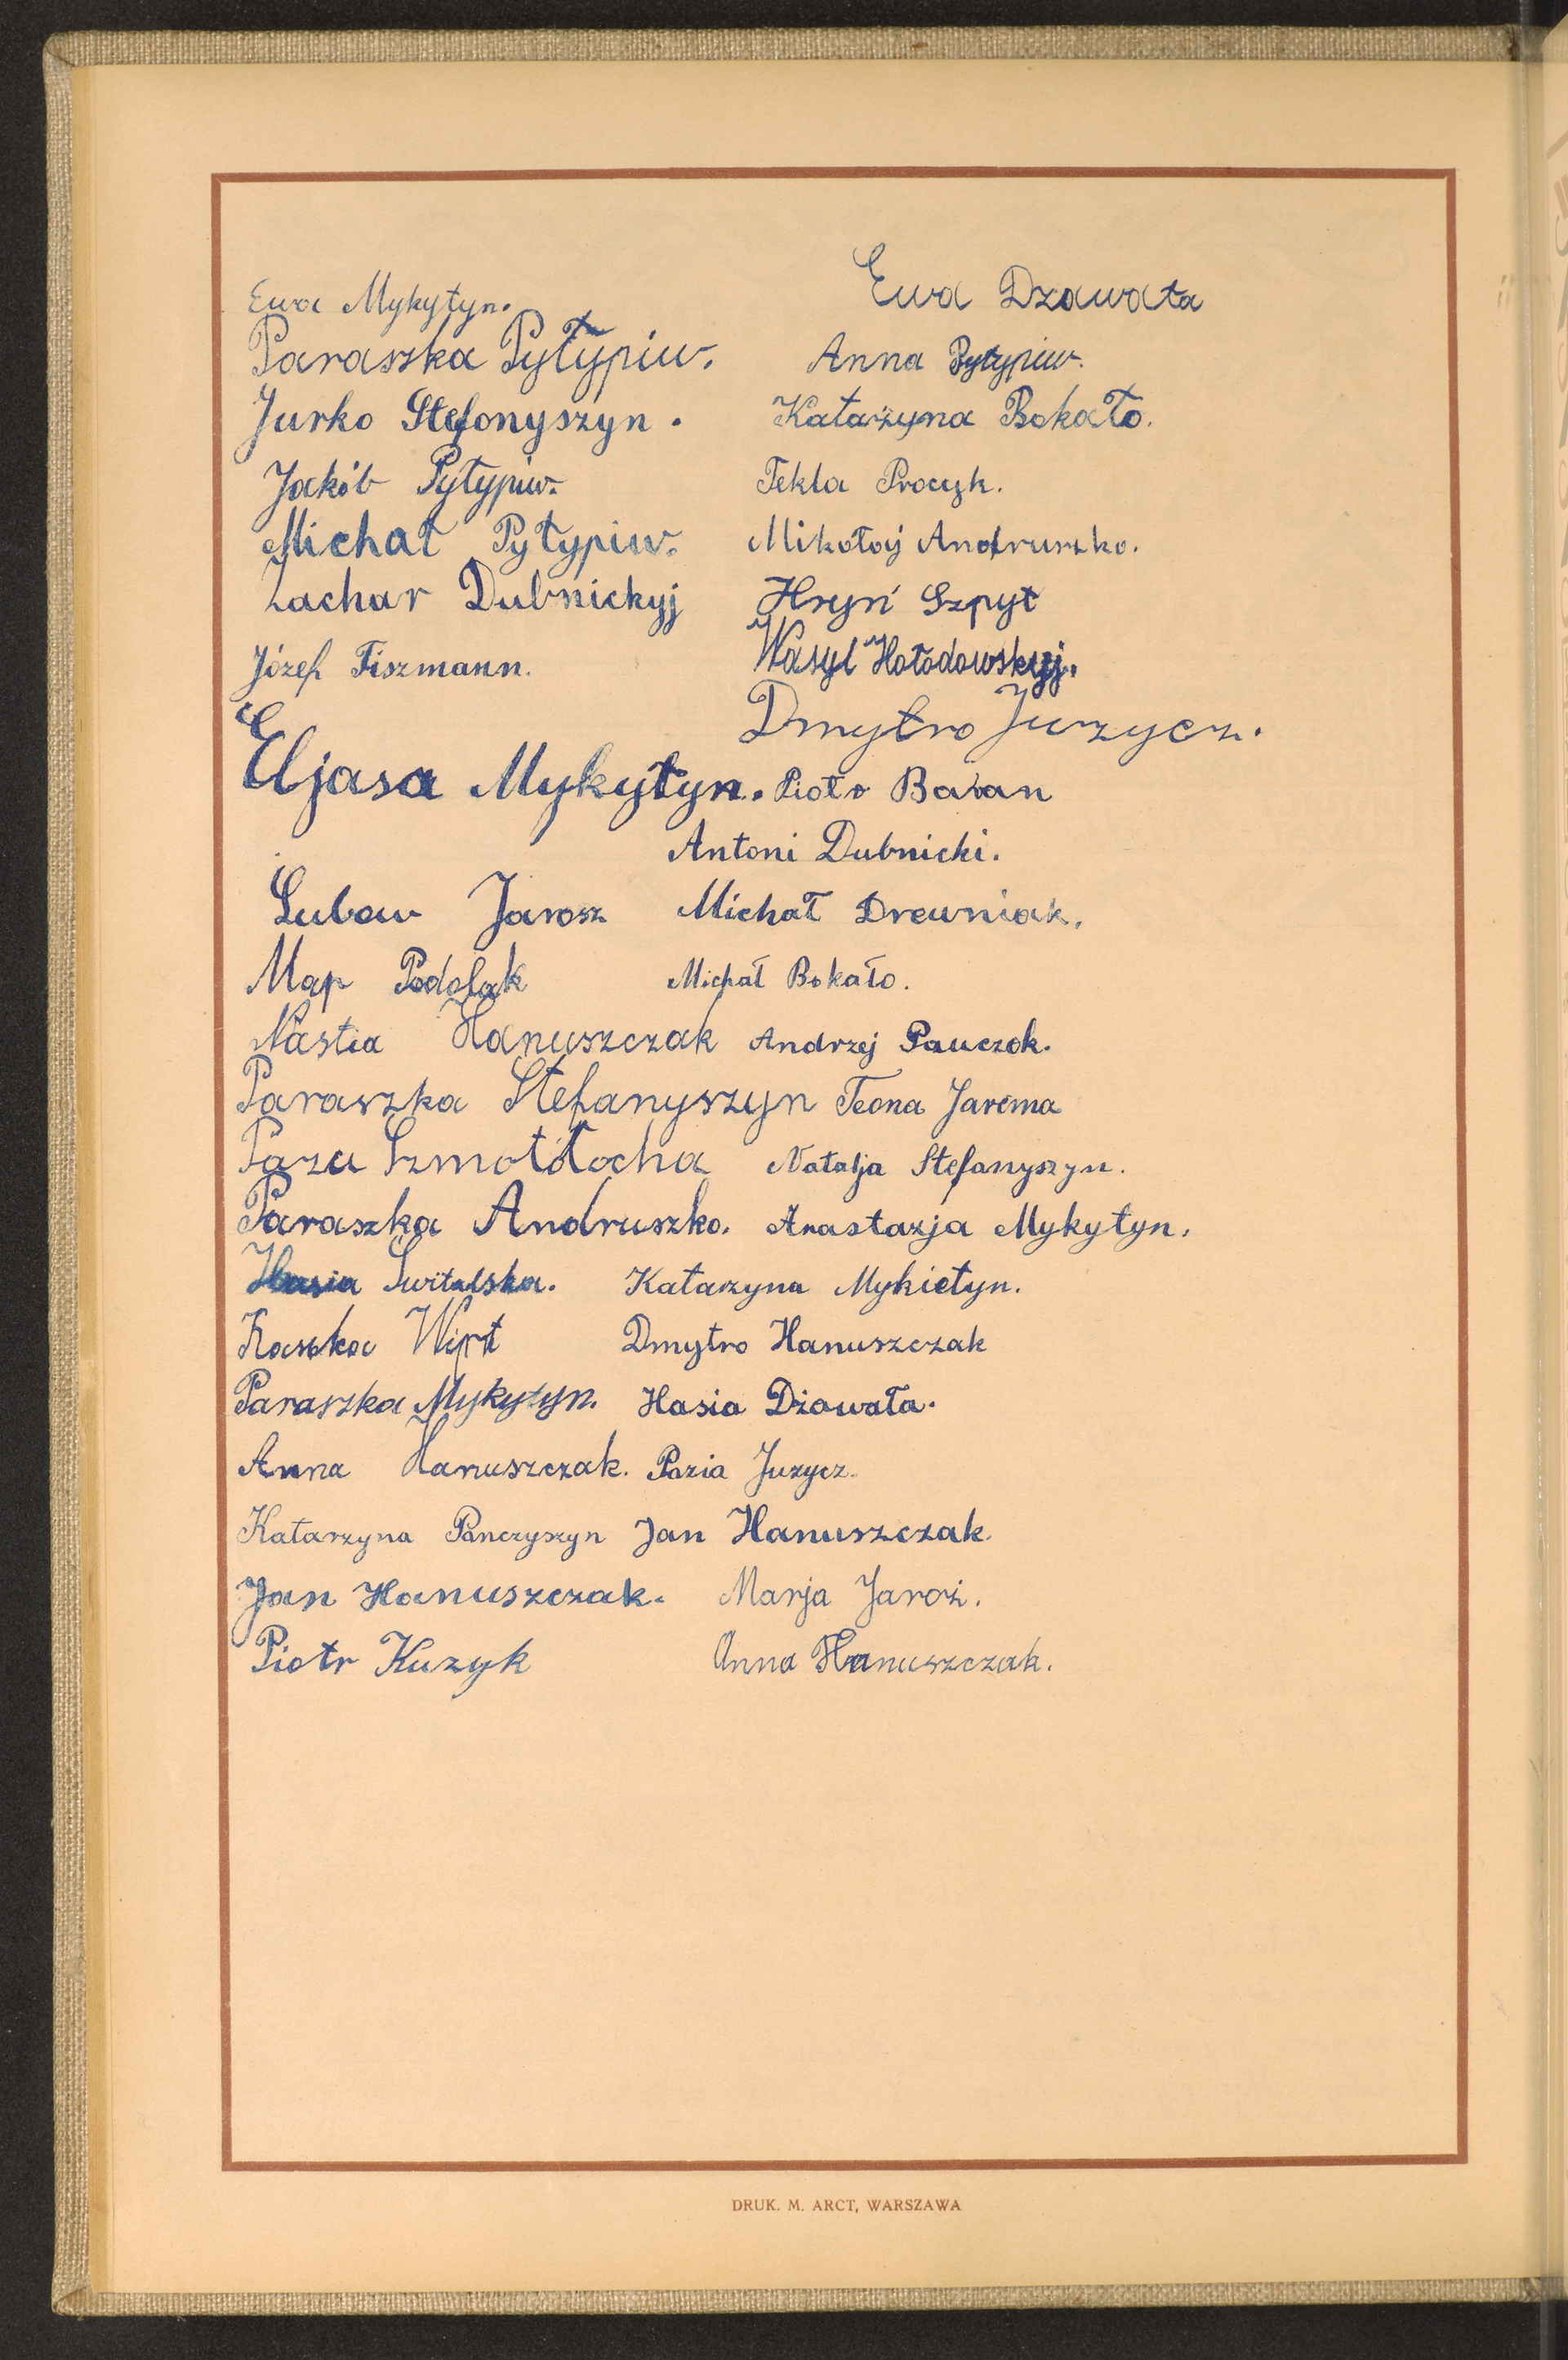 Ewa Mykytyn. Ewa Dzawata
Paraszka Pytypiw. Anna Pytypiw.
Jurko Stefonyszyn. Katarzyna Bokało.
Jakób Pytypiw. Tekla Procyk.
Michał Pytypiw. Mikołaj Andruszko.
Zachar Dubnickyj Hryń Szpyt
Józef Fiszmann. Wasyl Hołodowskyj.
Dmytro Juzycz.
Eljasa Mykytyn. Piotr Baran
Antoni Dubnicki.
Lubow Jarosz Michał Drewniak.
Map Podolak Michał Bokało.
Nastia Hanuszczak Andrzej Pauczok.
Paraszka Stefanyszyn Teona Jarema
Pazu Szmotołocha Natalja Stefanyszyn.
Paraszka Andruszko. Anastazja Mykytyn.
Hasia Świtalska. Katarzyna Mykietyn.
Kaszka Wipt Dmytro Hanuszczak
Paraszka Mykytyn. Hasia Dżawała.
Anna Hanuszczak. Pazia Juzycz.
Katarzyna Panczyszyn Jan Hanuszczak.
Jan Hanuszczak. Marja Jaroż.
Piotr Kuzyk Anna Hanuszczak.
DRUK. M. ARCT, WARSZAWA